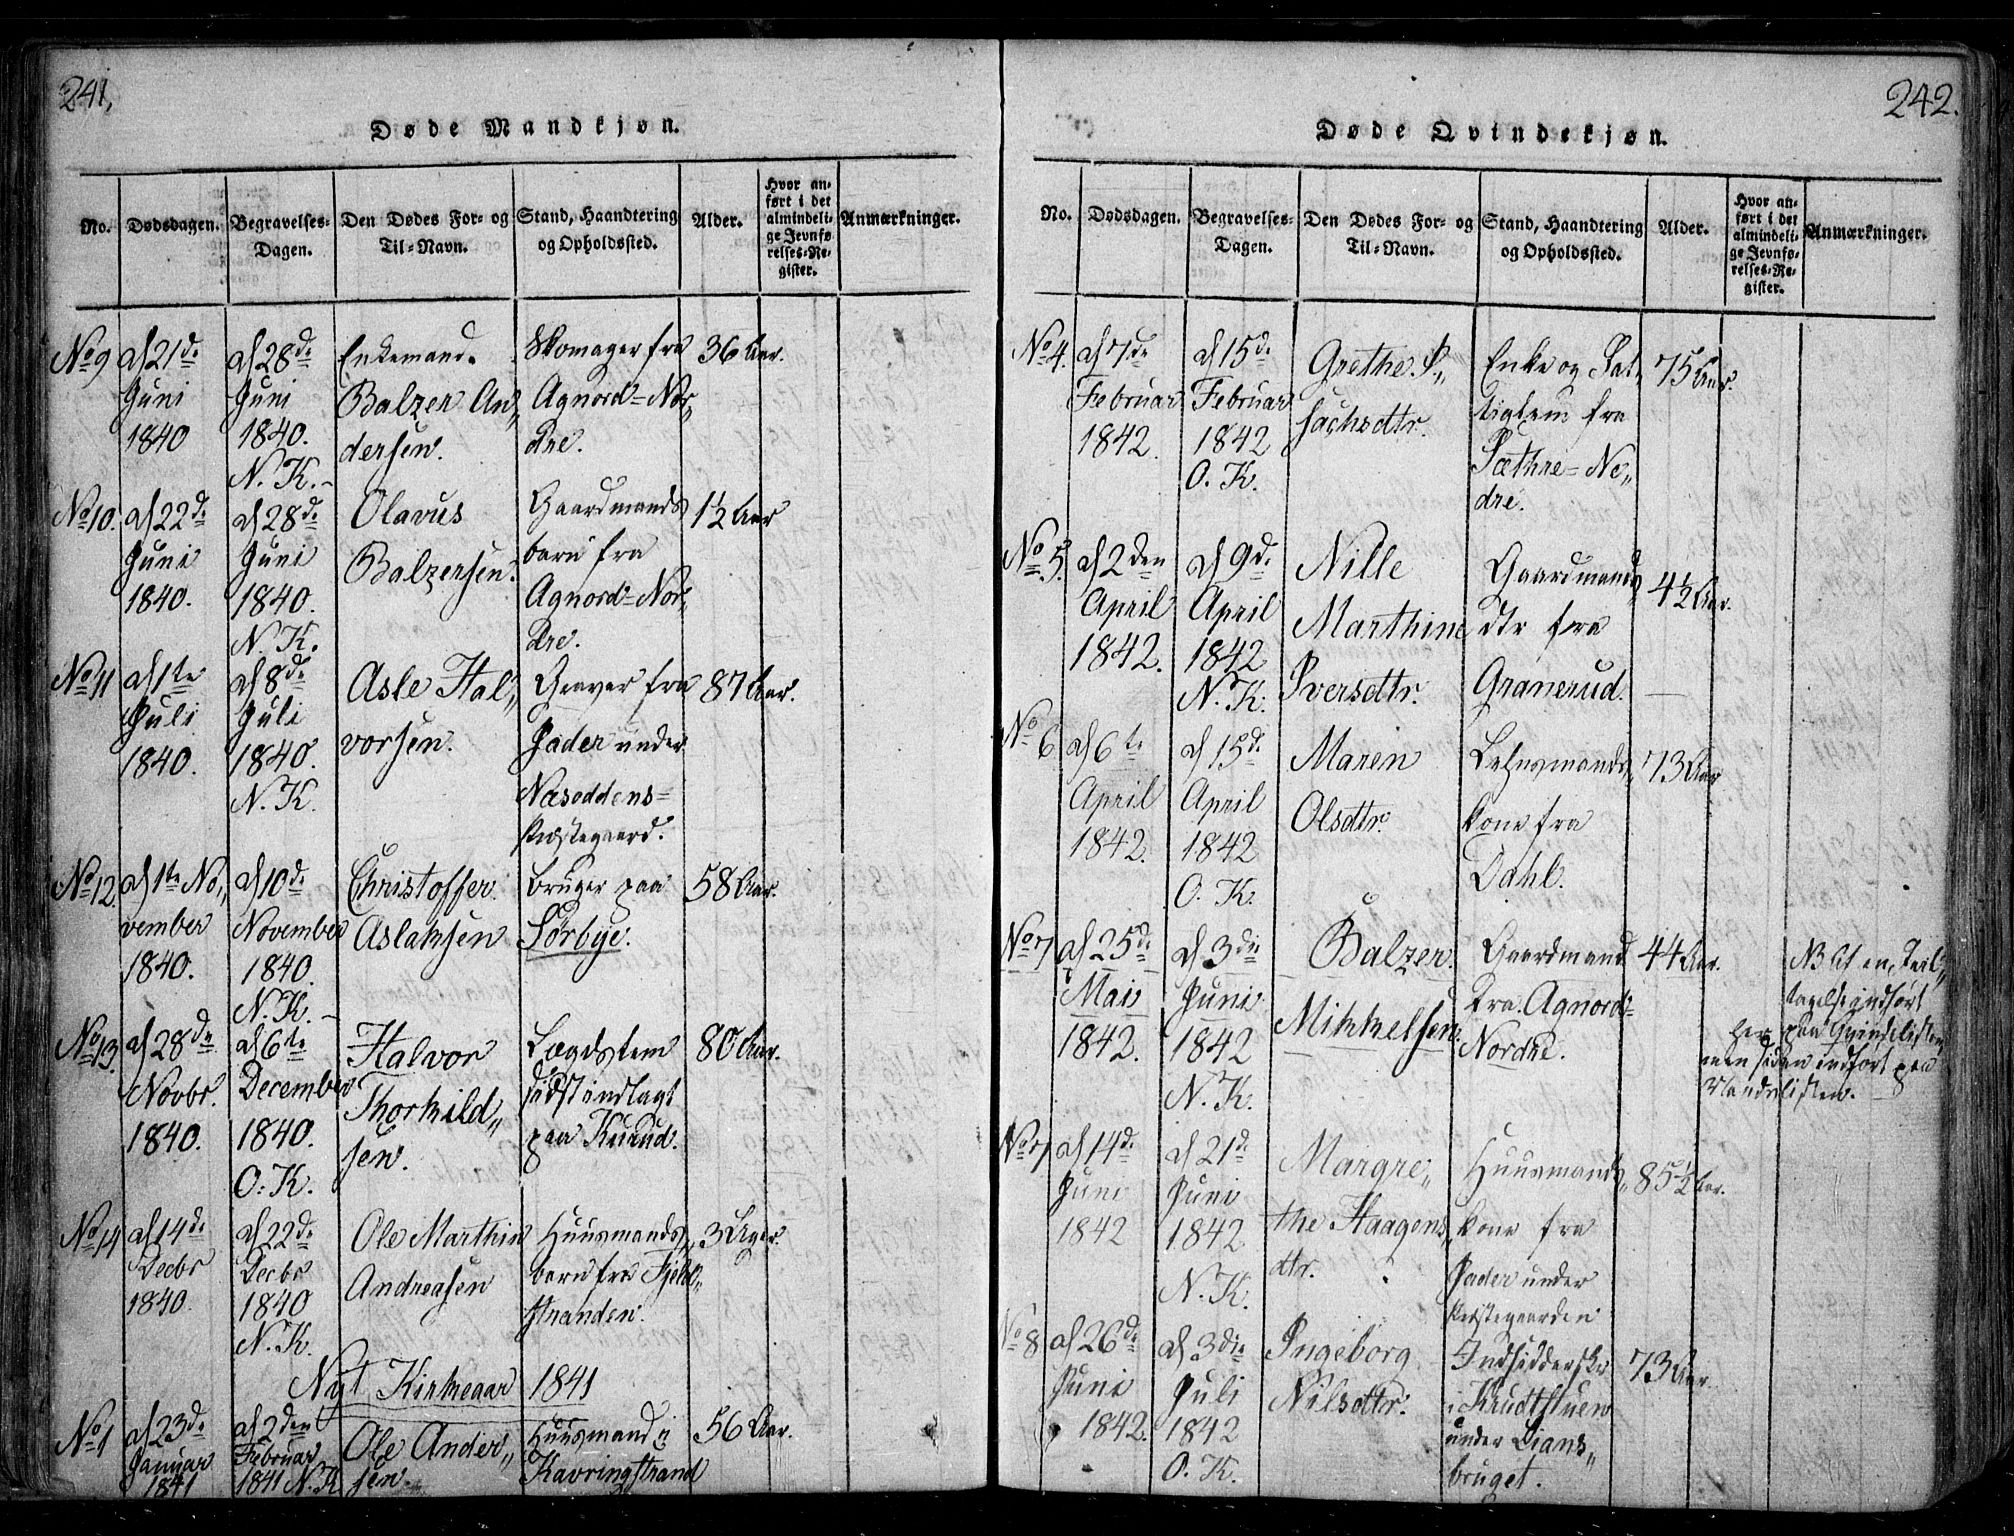 241,
Døde Mandkjøn.
No.
Dødsdagen.
Begravelses-
Dagen.
Den Dødes For- og
Til-Navn.
Stand, Haandtering
og Opholdssted.
Alder.
Hvor an-
ført i det
almindeli-
ge Jevnfø-
relses-Re-
gister.
Anmærkninger.
No 9
d 21de
Juni
1840
d 28de
Juni
1840.
N. K.
Enkemand.
Balzer An„
dersen.
Skomager fra
Agnord=Nor„
dre.
36 Aar.
No 10.
d 22de
Juni
1840.
d 28de
Juni
1840.
N. K.
Olavus
Balzersen.
Gaardmands
barn fra
Agnord=Nor„
dre.
1½ Aar
No 11
d 1te
Juli
1840.
d 8de
Juli
1840.
N. K.
Asle Hal„
vorsen.
Graver fra
Jader under
Næsoddens=
Præstegaard.
87 Aar.
No 12.
d 1te No„
vember
1840.
d 10de
November
1840.
N. K.
Christoffer
Aslaksen
Bruger paa
Sørbye.
58 Aar.
No 13.
d 28de
Novbr.
1840.
d 6te
December
1840.
O. K.
Halvor
Thorkild„
sen.
Lægdslem
sidst indlagt
paa Kurud.
80 Aar.
No 14
d 14de
Decbr
1840.
d 22de
Decbr
1840
N. K.
Ole Marthin
Andreasen
Huusmands„
barn fra Fjeld„
stranden.
3 Uger.
Nyt Kirkeaar 1841
No 1
d 23de
Januar
1841
d 2den
Februar
1841 N. K
Ole Ander„
sen.
Huusmand i
Kavringstrand
56 Aar.
242.
Døde Qvindekjøn.
No.
Dødsdagen.
Begravelses-
Dagen.
Den Dødes For- og
Til-Navn.
Stand, Haandtering
og Opholdssted.
Alder.
Hvor an-
ført i det
almindeli-
ge Jevnfø-
relses-Re-
gister.
Anmærkninger.
No 4.
d 7de
Februar
1842.
d 15de
Februar
1842
O. K.
Grethe I„
sachsdtr.
Enke og Fat„
tiglem fra
Sæthre=Ne„
dre.
75 Aar.
No 5.
d 2den
April
1842.
d 9de
April
1842
N. K.
Nille
Marthine
Iversdtr.
Gaardmands
dtr fra
Granerud.
4½ Aar.
No 6
d 6te
April
1842.
d 15de
April
1842
O. K.
Maren
Olsdtr.
Lehnsmands„
kone fra
Dahl.
73 Aar
No 7
d 25de
Mai
1842.
d 3die
Juni
1842
N. K.
Balzer
Mikkelsen.
Gaardmand
fra Agnord=
Nordre.
44 Aar.
NB At en Feil„
tagelse indført
her paa Qvindelisten
men siden indført paa
Mandslisten.
No 7
d 14de
Juni
1842
d 21de
Juni
1842
N. K.
Margre„
the Haagens„
dtr.
Huusmands„
kone fra
Jader under
Præstegaarden
85½ Aar.
No 8
d 26de
Juni
1842.
d 3die
Juli
1842
O. K.
Ingeborg
Nilsdtr.
Indsidderske
i Krudtstuen
under Lians„
bruget.
73 Aar.